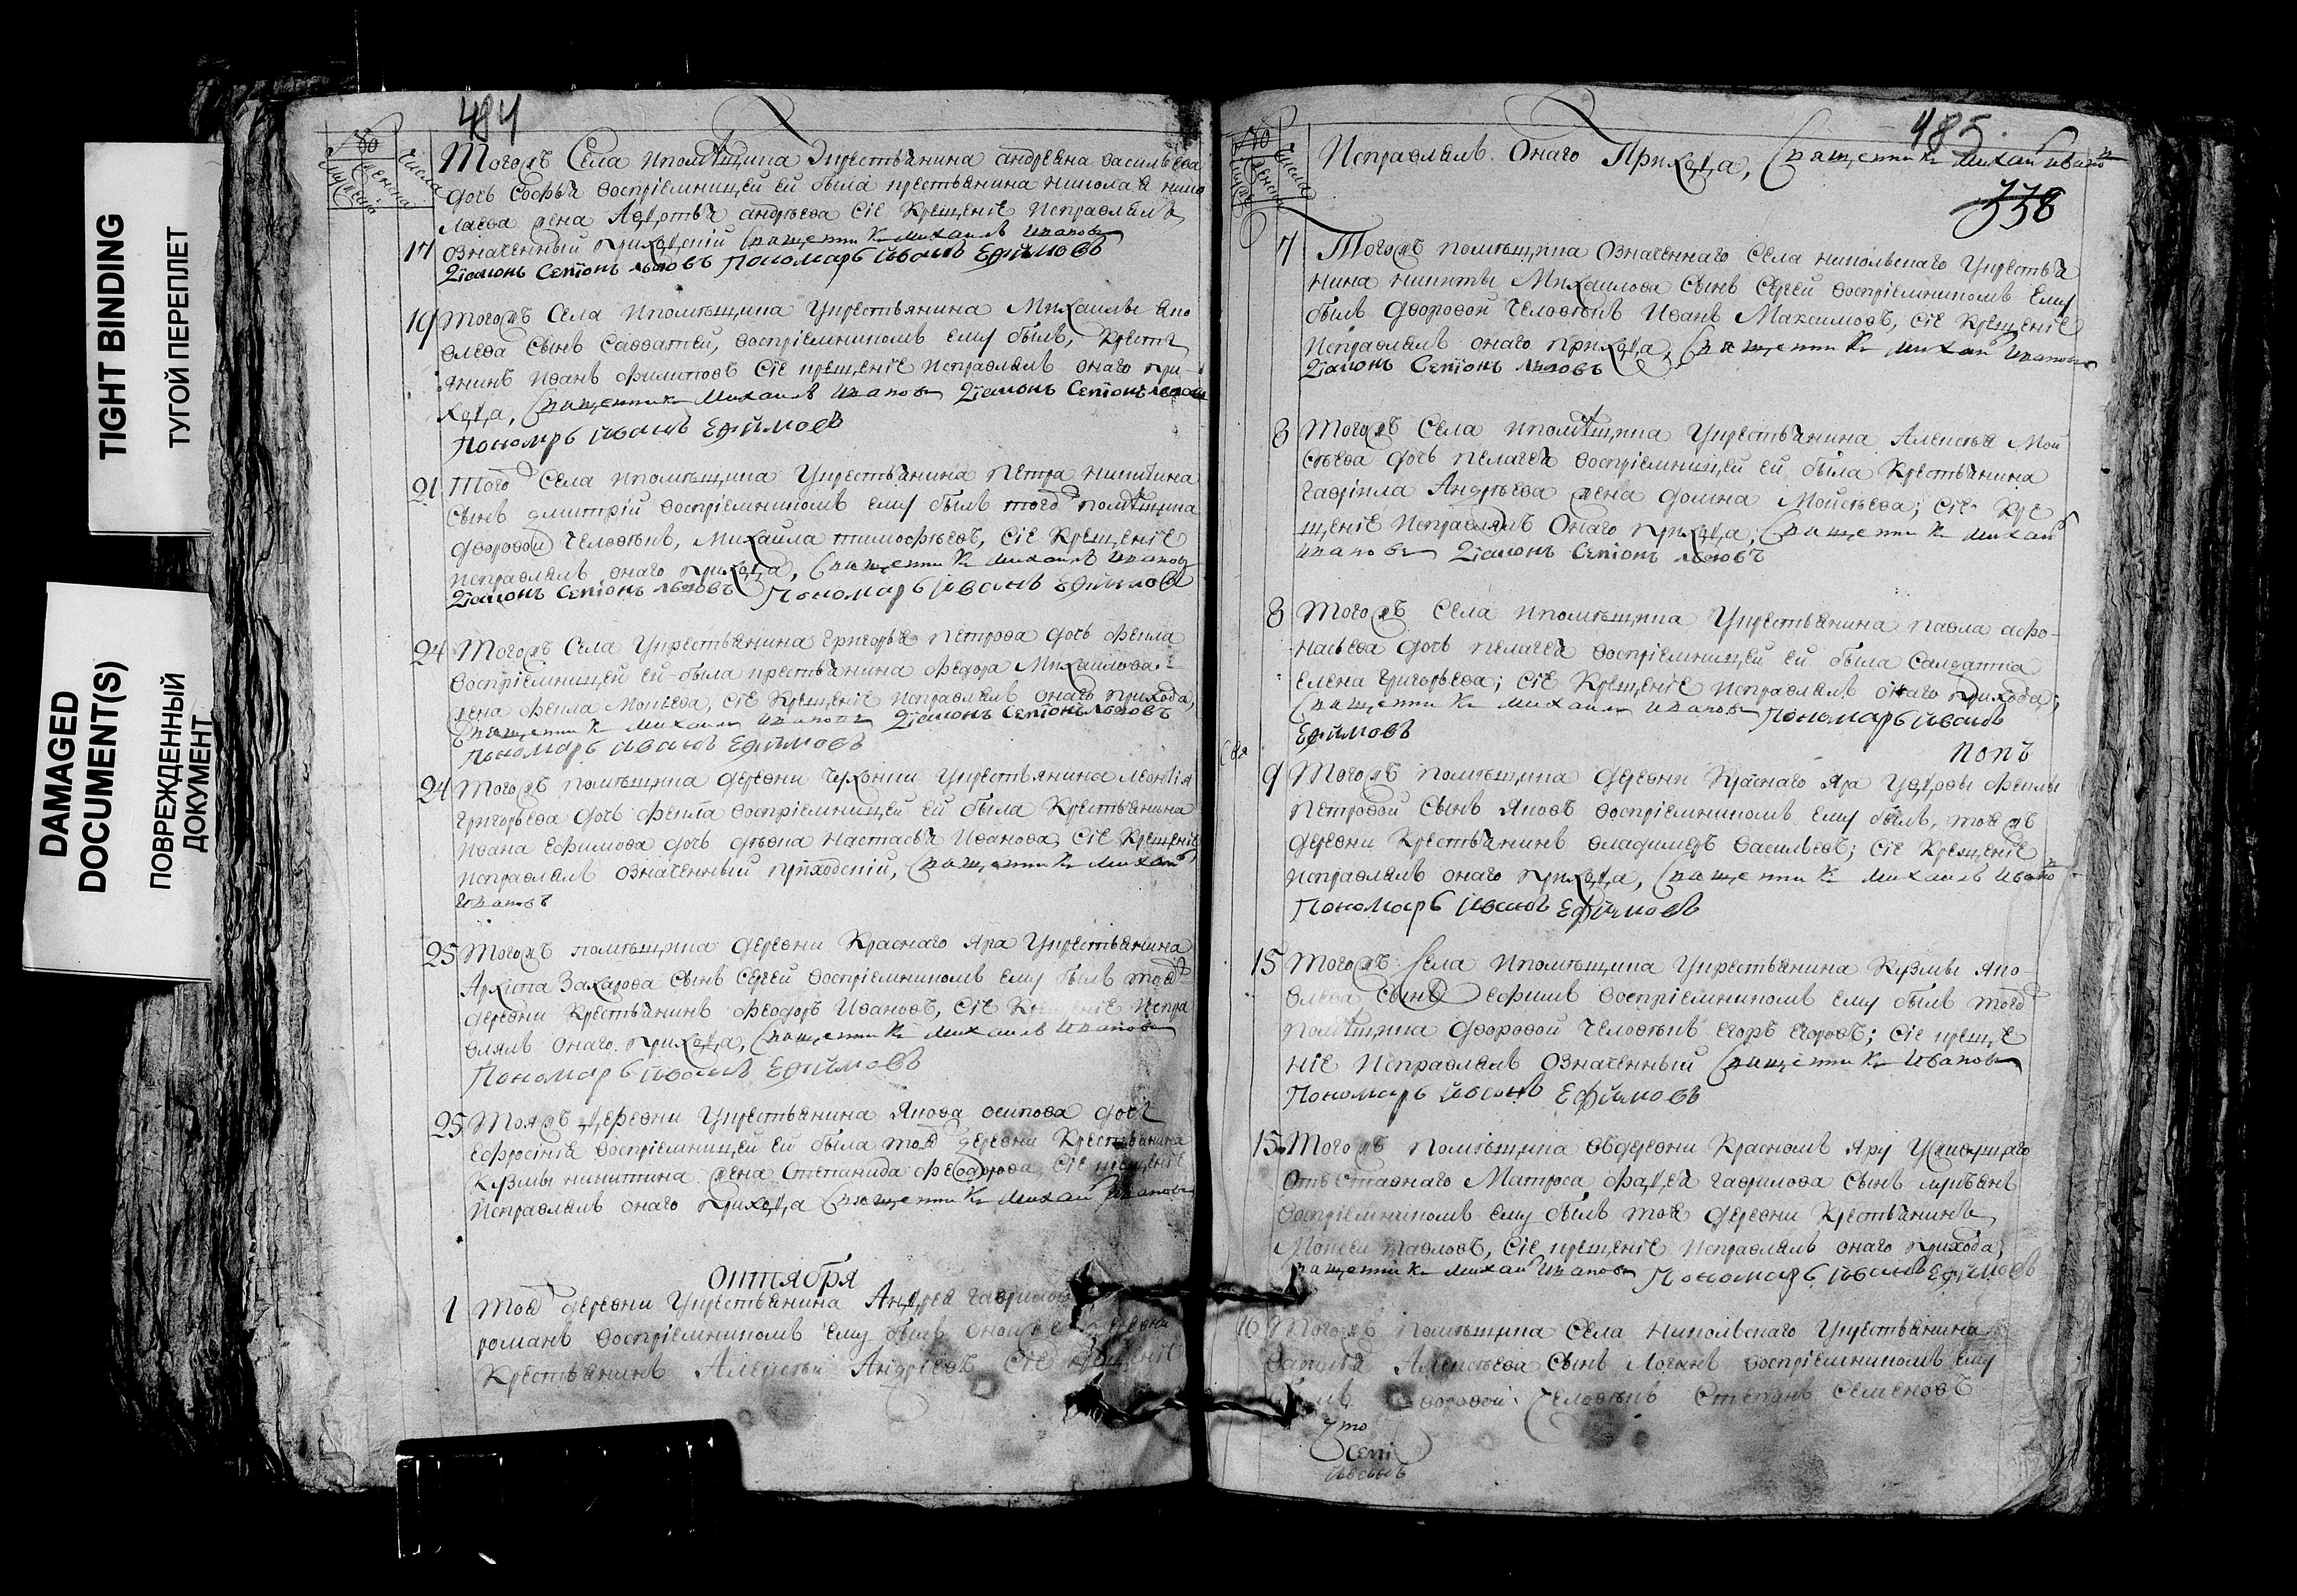 TIGHT BINDING
ТУГОЙ ПЕРЕПЛЕТ
DAMAGED
DOCUMENT(S)
ПОВРЕЖДЕННЫЙ
ДОКУМЕНТ
484
Числа
Тогожъ Села ипомѣщика Укрестьянина андреяна васильева
дочь Софья восприемницей ей была крестьянина николая нико
лаева жена Авдотья андрѣева сіе крещеніе исправлялъ
17 означенный приходскій священникъ михаилъ ивановъ
Діаконъ Семіонъ львовъ Пономарь Iванъ Ефимовъ
19 Тогожъ Села ипомѣщика Укрестьянина Михаилы яко
влева сынъ Савватей, восприемникомъ ему былъ, крестья
янинъ иванъ филиповъ сіе крещеніе исправлялъ онаго при
хода, священникъ михаилъ ивановъ Діаконъ Семіонъ львовъ
Пономарь Iванъ Ефимовъ
21 Тогожъ Села ипомѣщика Укрестьянина петра никитина
сынъ дмитрій восприемникомъ ему былъ тогожъ помѣщика
дворовой человѣкъ, михаила тимофѣевъ, сіе крещеніе
исправлялъ онаго прихода, священникъ михаилъ ивановъ
Діаконъ Семіонъ львовъ Пономарь Iванъ Ефимовъ
24 Тогожъ Села Укрестьянина григорья петрова дочь фекла
восприемницей ей была крестьянина федора михаилова
жена фекла, сіе крещеніе исправлялъ онаго прихода,
священникъ михаилъ ивановъ Діаконъ Семіонъ львовъ
Пономарь Iванъ Ефимовъ
24 Тогожъ помѣщика деревни Укрестьянина леонтія
григорьева дочь фекла восприемницей ей была крестьянина
ивана ефимова дочь дѣвка настасья иванова, сіе крещеніе
исправлялъ означенный приходскій, священникъ михаилъ
ивановъ
25 Тогожъ помѣщика деревни Краснаго яра Укрестьянина
Архипа Захарова сынъ сергей восприемникомъ ему былъ тояжъ
деревни крестьянинъ феодоръ ивановъ, сіе крещеніе испра
влялъ онаго прихода, священникъ михаилъ ивановъ
Пономарь Iванъ Ефимовъ
25 Тояжъ деревни Укрестьянина якова осипова дочь
ефросинія восприемницей ей была тояжъ деревни крестьянина
кузмы никитина жена степанида феодорова, сіе крещеніе
исправлялъ онаго прихода священникъ михаилъ ивановъ
октября
1 Тояжъ деревни Укрестьянина Андрея гаврилова
романъ восприемникомъ ему былъ деревни
крестьянинъ Алексѣй Андрѣевъ сіе крещеніе
485.
Числа
исправлялъ онаго прихода, священникъ михаилъ ивановъ
338
7 Тогожъ помѣщика означеннаго села никольскаго Укрестья
нина никиты михаилова сынъ сергей восприемникомъ ему
былъ дворовой человѣкъ иванъ Максимовъ, сіе крещеніе
исправлялъ онаго прихода, священникъ михаилъ ивановъ
Діаконъ Семіонъ львовъ
8 Тогожъ Села ипомѣщика Укрестьянина Алексѣя Мои
сѣева дочь пелагея восприемницей ей была крестьянина
гаврила Андрѣева жена домна Моисѣева; сіе кре
щеніе исправлялъ онаго прихода, священникъ михаилъ
ивановъ Діаконъ Семіонъ львовъ
8 Тогожъ Села ипомѣщика Укрестьянина павла афо
насьева дочь пелагея восприемницей ей была салдатка
елена григорьева; сіе крещеніе исправлялъ онаго прихода;
священникъ михаилъ ивановъ Пономарь Iванъ
Ефимовъ
попъ
9 Тогожъ помѣщика деревни Краснаго Яра Увдовы феклы
петровой сынъ яковъ восприемникомъ ему былъ, тояжъ
деревни крестьянинъ владимеръ васильевъ; сіе крещеніе
исправлялъ онаго прихода, священникъ михаилъ ивановъ
Пономарь Iванъ Ефимовъ
15 Тогожъ Села ипомѣщика Укрестьянина Кузмы яко
влева сынъ ефимъ восприемникомъ ему былъ тогожъ
помѣщика дворовой человѣкъ егоръ егоровъ; сіе креще
ніе исправлялъ означенный священникъ ивановъ
Пономарь Iванъ Ефимовъ
15 Тогожъ помѣщика вдеревни Красномъ Яру Уживущаго
отъставнаго Матроса фадѣя гаврилова сынъ лукьянъ
восприемникомъ ему былъ тояжъ деревни крестьянинъ
Моисей павловъ, сіе крещеніе исправлялъ онаго прихода;
священникъ михаилъ ивановъ Пономарь Iванъ Ефимовъ
16 Тогожъ помѣщика Села никольскаго Укрестьянина
Алексѣева сынъ логинъ восприемникомъ ему
былъ дворовой человѣкъ степанъ семеновъ
Семі
Iванъ